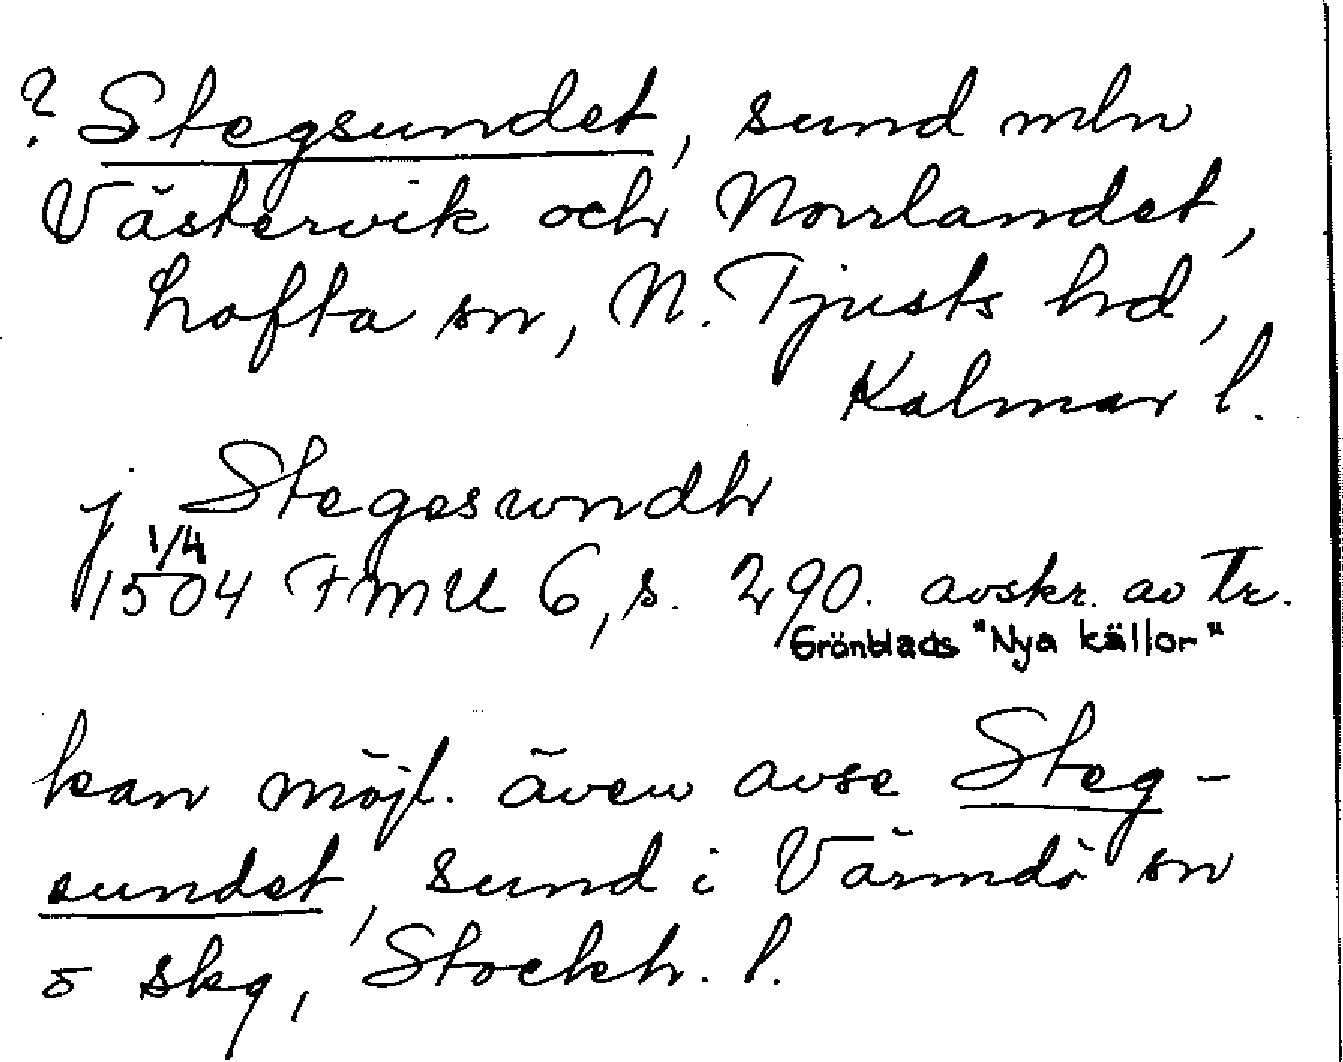 ? Stegsundet, sund mln
Västervik och Norrlandet,
Lofta sn, N. Tjusts hd,
Kalmar l.
j Stegesundh
1/4
1504 FMU 6, s. 290. avskr. av Tr.
Grönblads "Nya källor"
kan möjl. även avse Steg-
sundet, sund i Värmdö sn
o skg, Stockh. l.